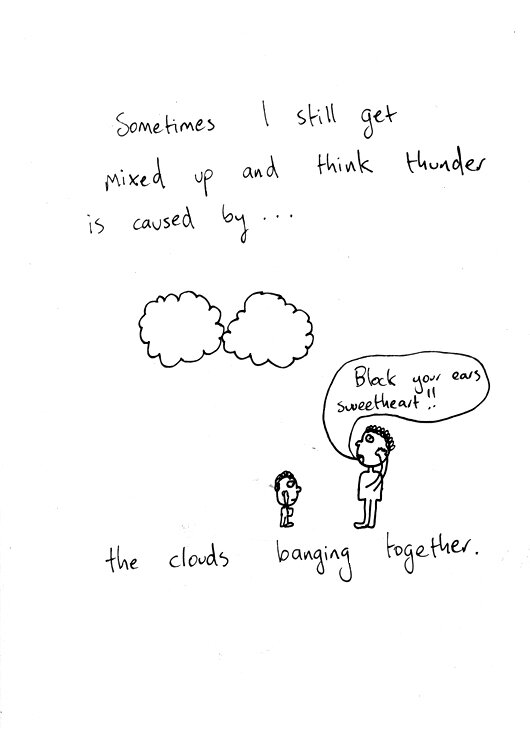 Sometimes I still get
mixed up and think thunder
is caused by...
Block your ears
sweetheart!!
the clouds banging together.